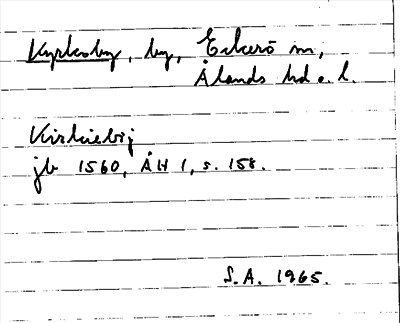 Kyrkoby, by, Eckerö sn,
Ålands hd o. l.
Kirkieby
jb 1560, ÅH 1, s. 158.
S.A. 1965.